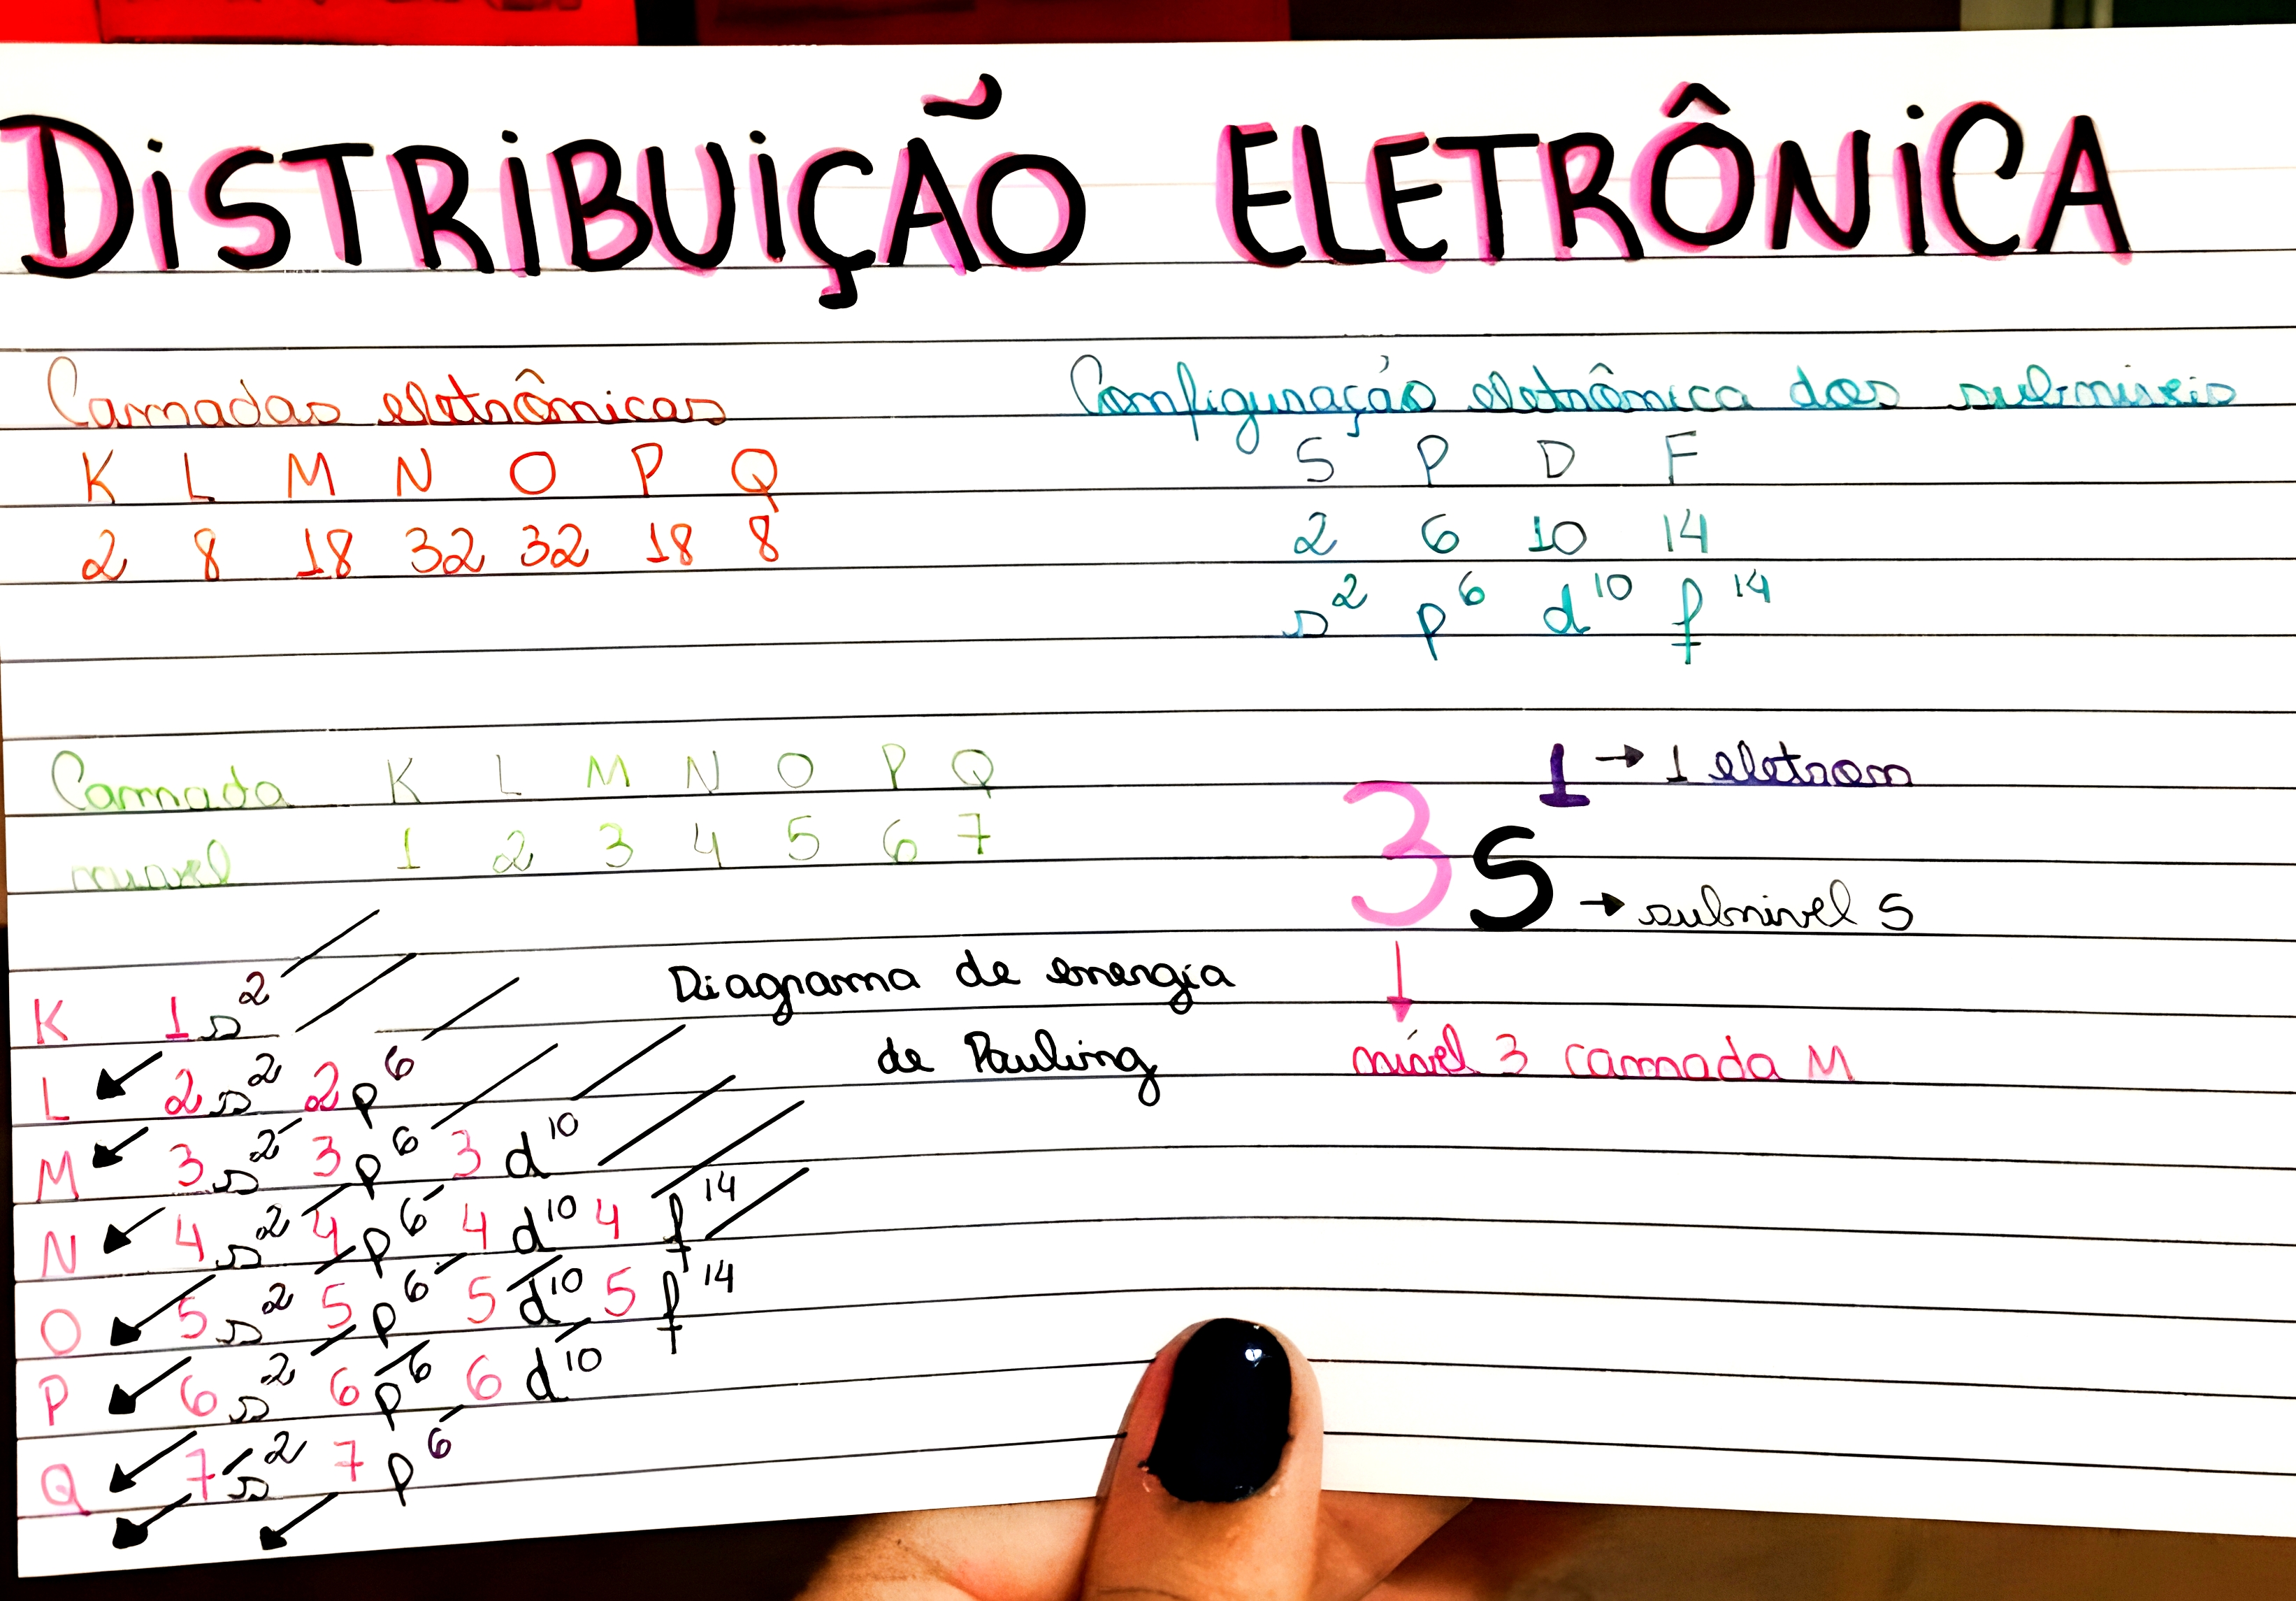 DiSTRiBUiÇÃO ELETRÔNiCA
Camadas eletrônicas
K L M N O P Q
2 8 18 32 32 18 8
Configuração eletrônica dos sub-niveis
S P D F
2 6 10 14
s² p⁶ d¹⁰ f¹⁴
Camada K L M N O P Q
nivel 1 2 3 4 5 6 7
3s¹
→ 1 eletron
→ subnivel S
nível 3 camada M
Diagrama de energia
de Pauling
K 1s²
L 2s² 2p⁶
M 3s² 3p⁶ 3d¹⁰
N 4s² 4p⁶ 4d¹⁰ 4f¹⁴
O 5s² 5p⁶ 5d¹⁰ 5f¹⁴
P 6s² 6p⁶ 6d¹⁰
Q 7s² 7p⁶